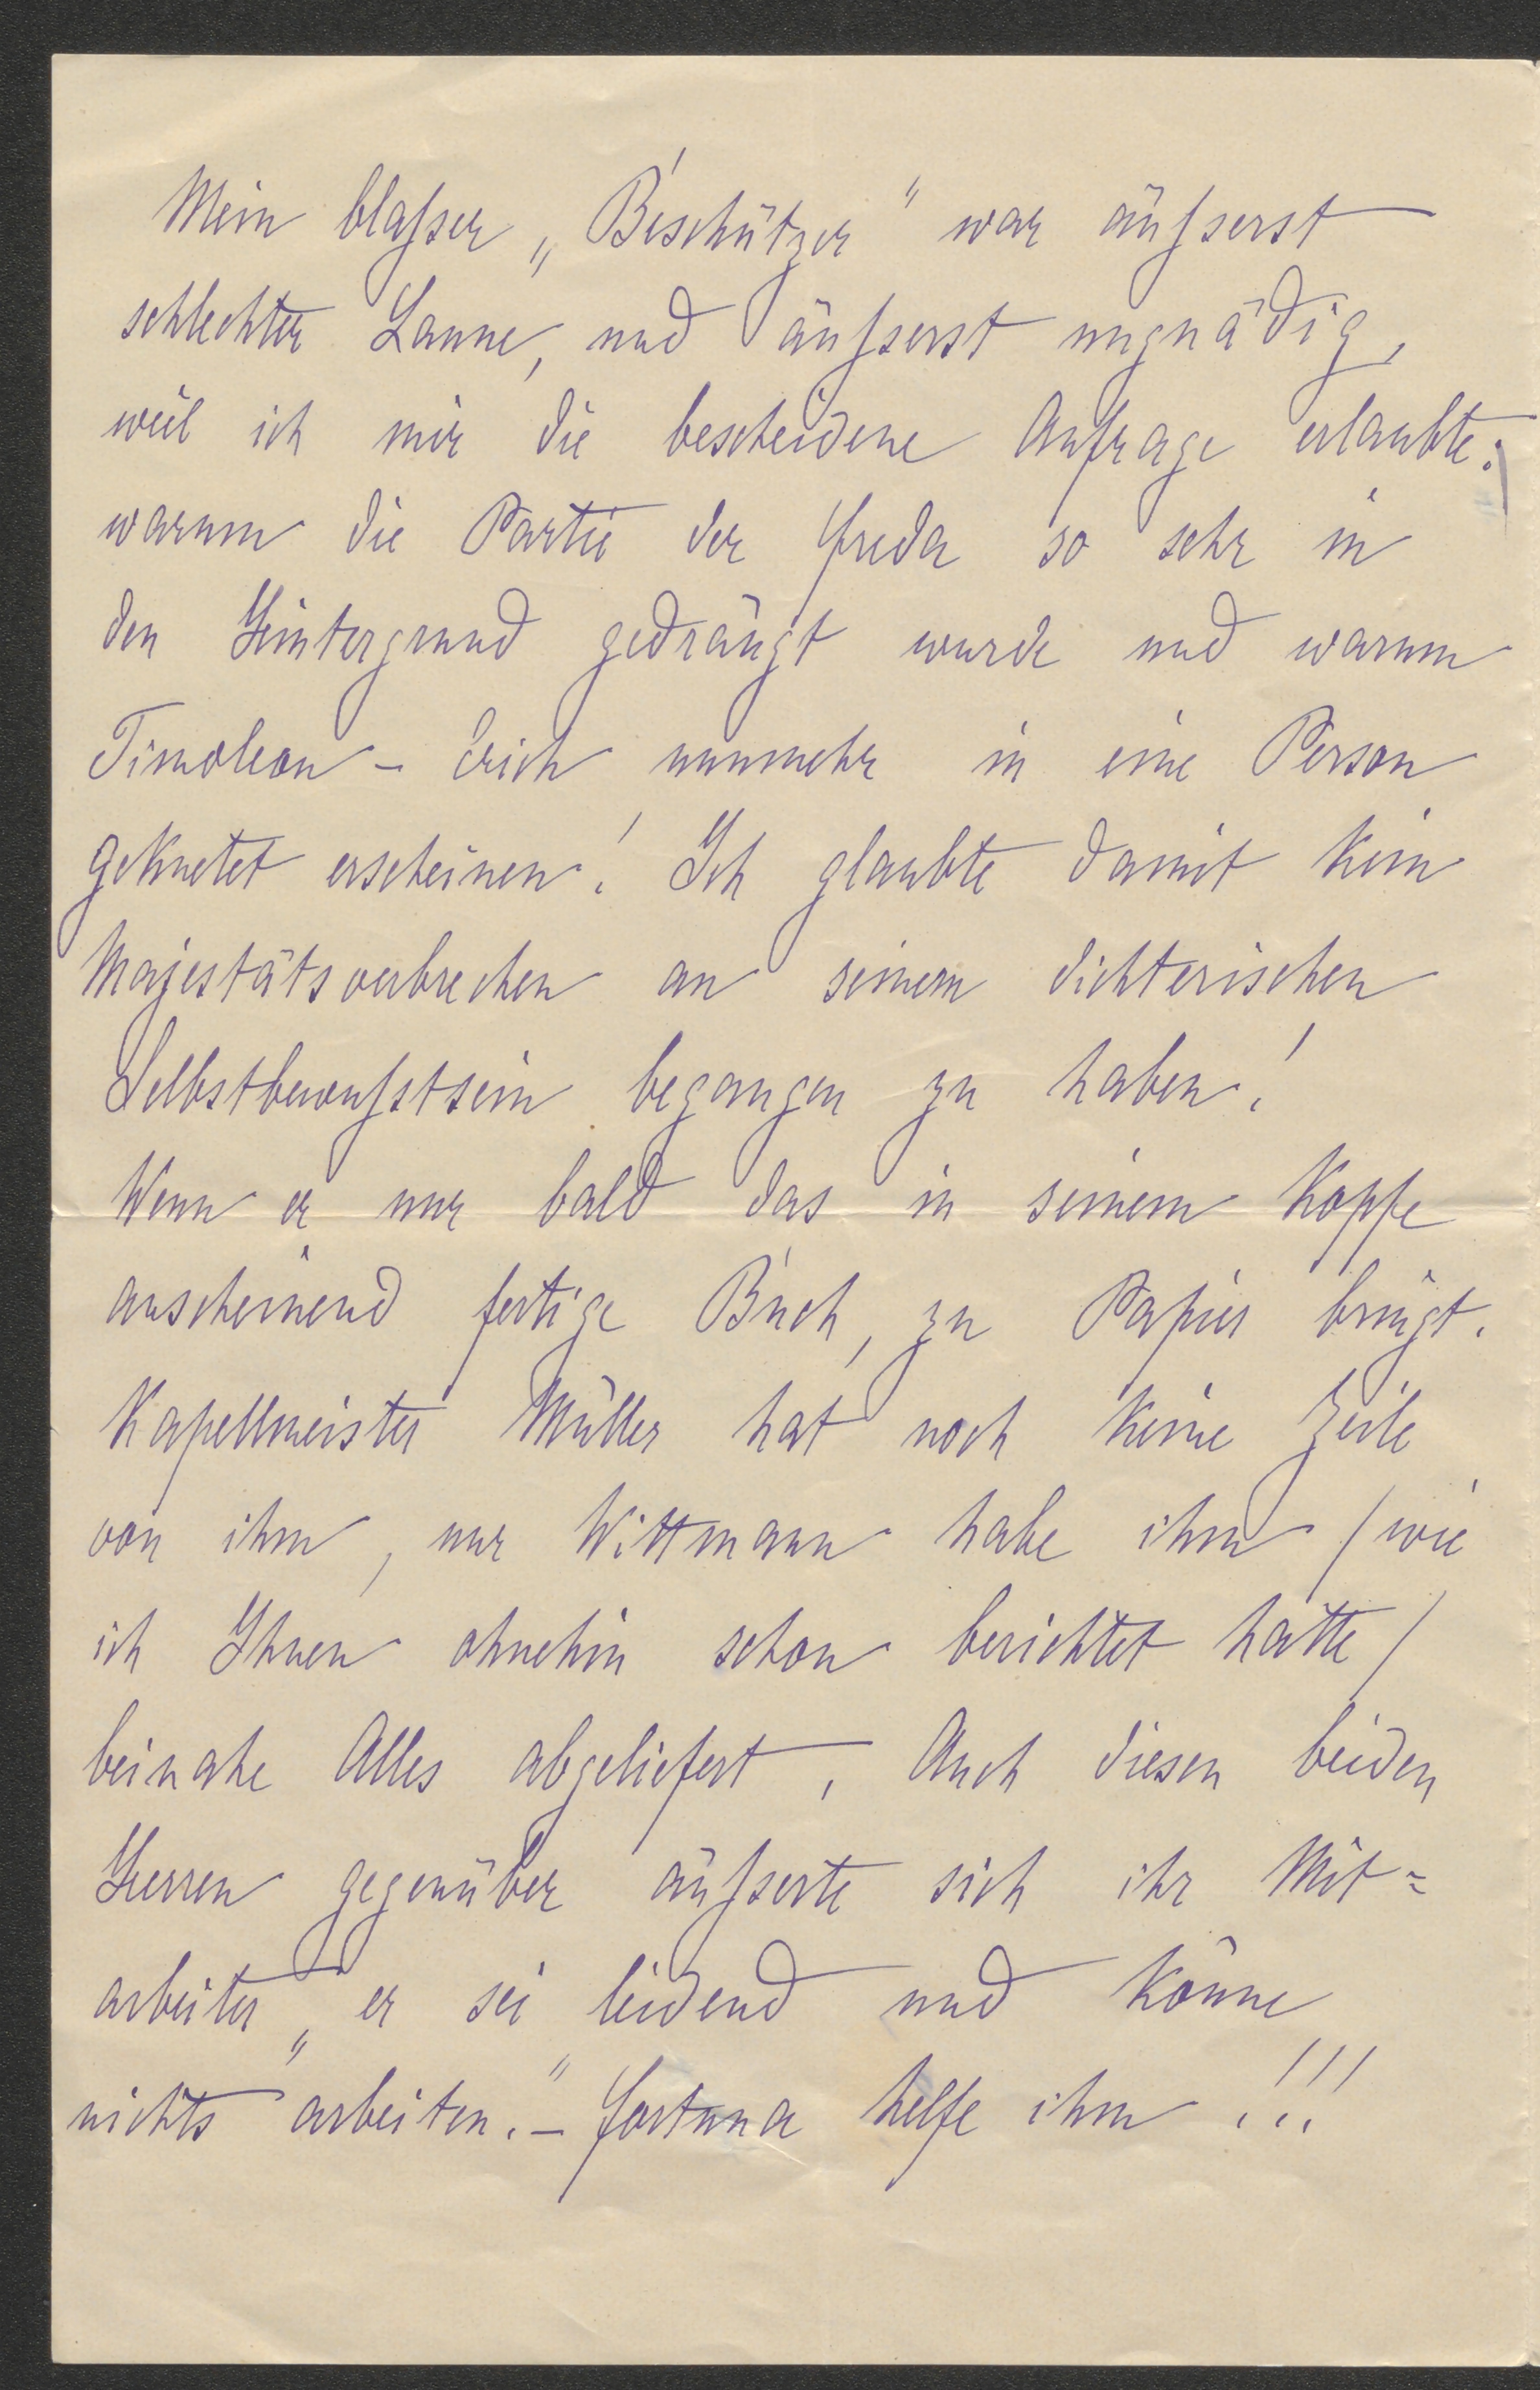 Mein blasser „Beschützer" war äusserst
schlechter Laune, und äusserst ungnädig,
weil ich mir die bescheidene Anfrage erlaubte:
warum die Partie der Freda so sehr in
den Hintergrund gedrängt wurde und warum
Timoleon - Erich nunmehr in eine Person
geknetet erscheinen! Ich glaubte damit kein
Majestätsverbrechen an seinem dichterischen
Selbstbewusstsein begangen zu haben!
Wenn er nur bald das in seinem Kopfe
anscheinend fertige Buch, zu Papier bringt.
Kapellmeister Müller hat noch keine Zeile
von ihm, nur Wittmann habe ihm /wie
ich Ihnen ohnehin schon berichtet hatte/
beinahe Alles abgeliefert. Auch diesen beiden
Herren gegenüber äusserte sich ihr Mit=
arbeiter „er sei leidend und könne
nichts arbeiten." - Fortuna helfe ihm!!!